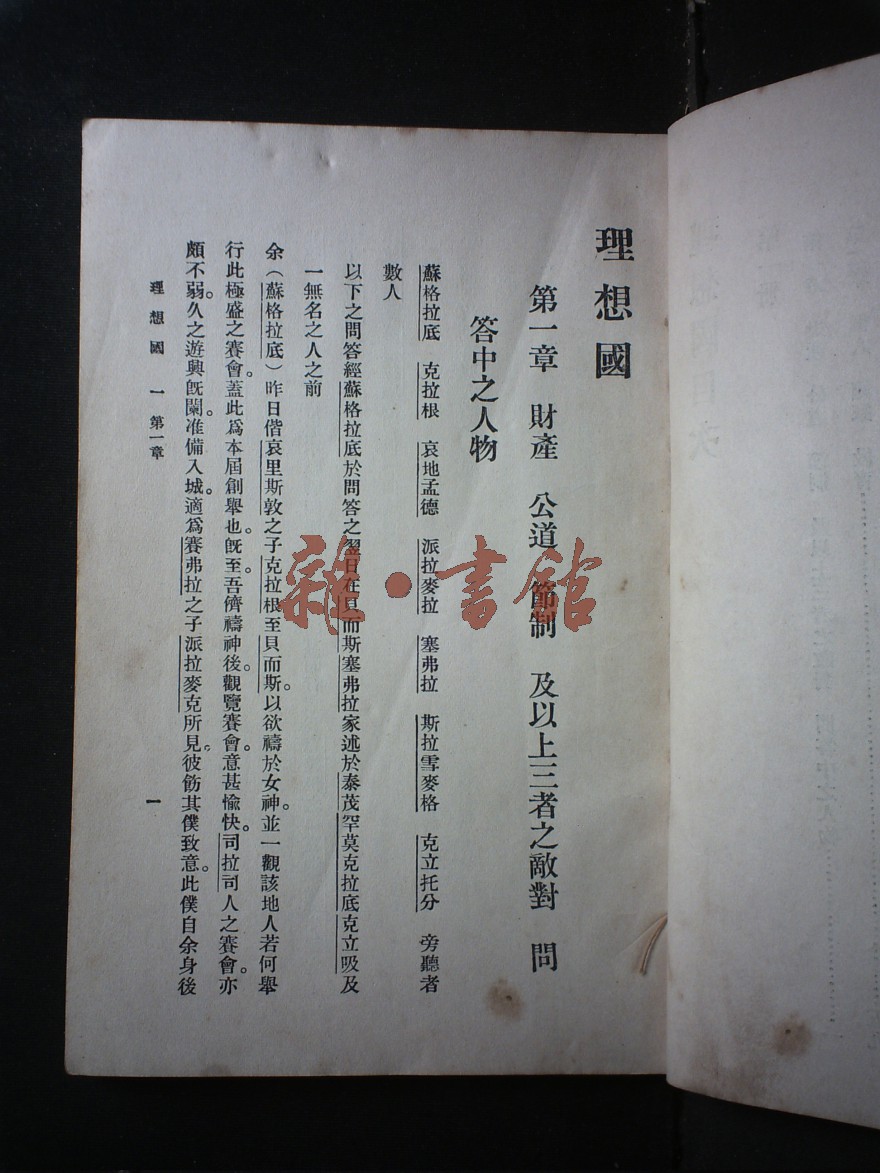 理想國
第一章　財產　公道　節制　及以上三者之敵對　問
答中之人物
蘇格拉底　克拉根　哀地孟德　派拉麥拉　塞弗拉　斯拉雪麥格　克立托分　旁聽者
數人
以下之問答經蘇格拉底於問答之翌日在貝而斯塞弗拉家述於泰茂罕莫克拉底克立吸及
一無名之人之前
余（蘇格拉底）昨日偕哀里斯敦之子克拉根至貝而斯。以欲禱於女神。並一觀該地人若何舉
行此極盛之賽會。蓋此爲本屆創舉也。旣至。吾儕禱神後。觀覽賽會。意甚愉快。司拉司人之賽會。亦
頗不弱。久之遊興旣闌。准備入城。適爲賽弗拉之子派拉麥克所見。彼飭其僕致意。此僕自余身後
理想國　一　第一章
一
雜·書館